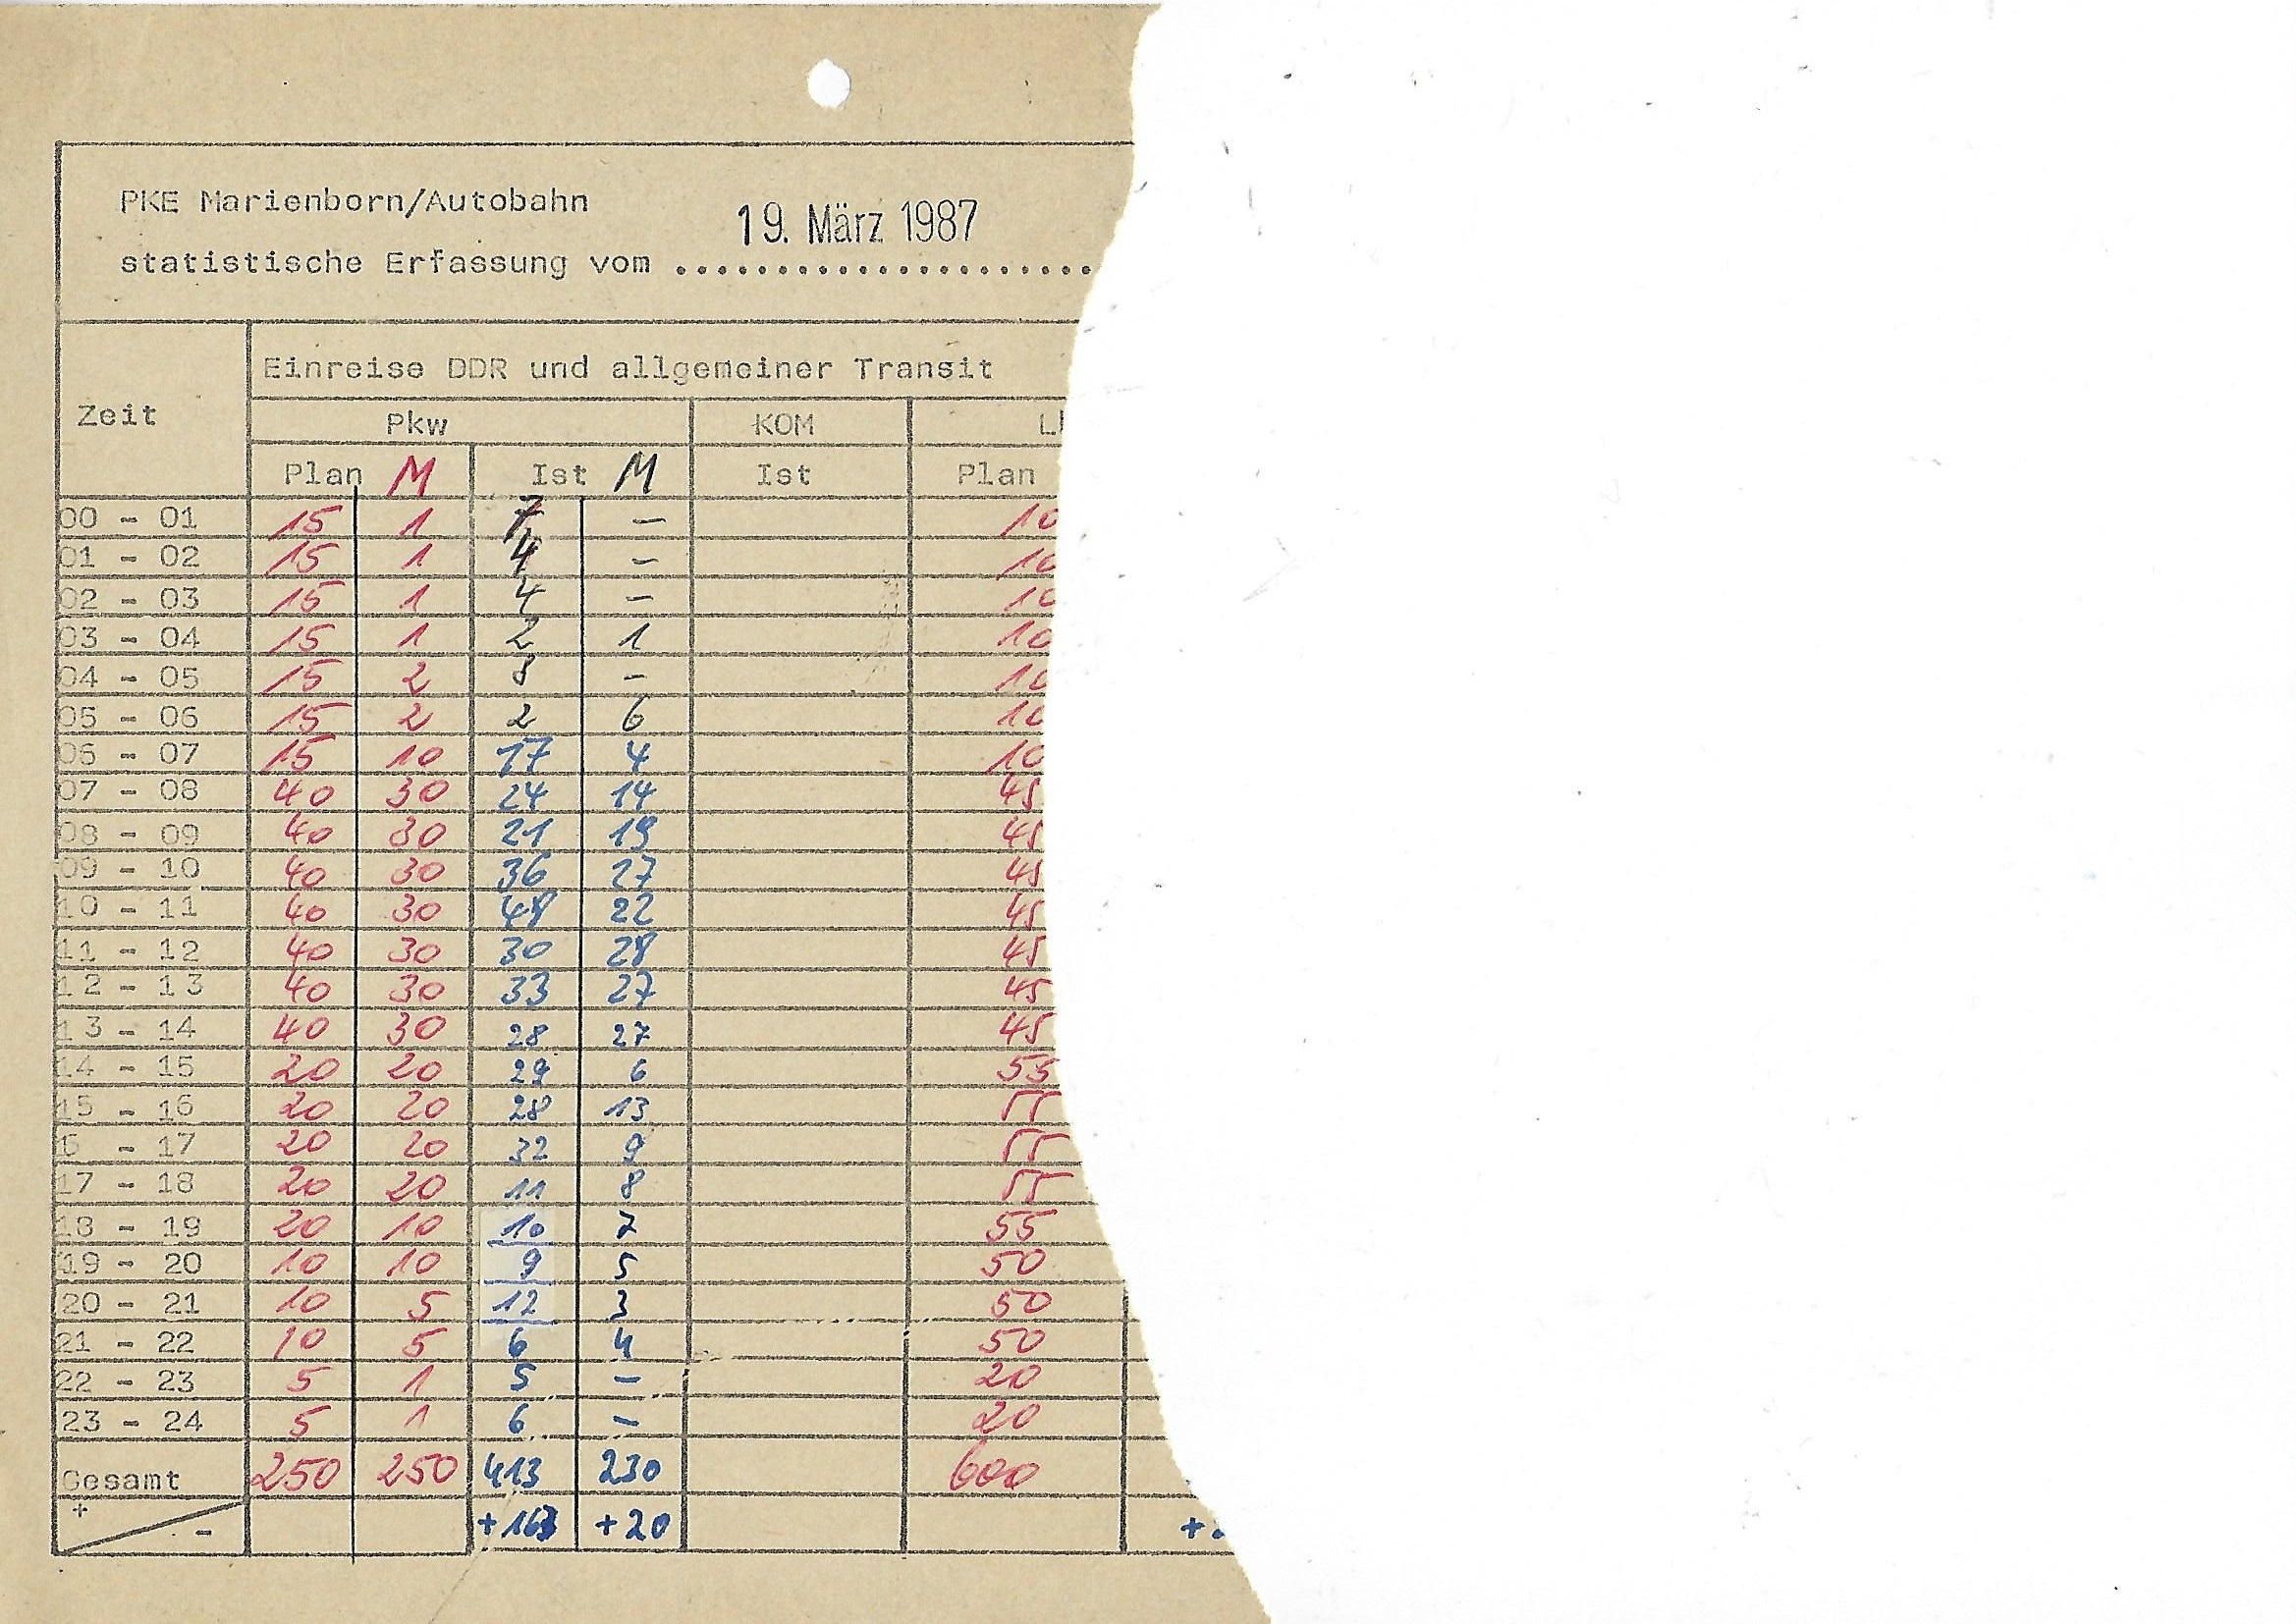 PKE Marienborn/Autobahn
19. März 1987
statistische Erfassung vom ......................
Einreise DDR und allgemeiner Transit
Zeit
Pkw KOM
Plan M Ist M Ist Plan
00 - 01 15 1 7 – 10
01 - 02 15 1 4 – 10
02 - 03 15 1 4 – 10
03 - 04 15 1 2 1 10
04 - 05 15 2 8 – 10
05 - 06 15 2 2 6 10
06 - 07 15 10 17 4 10
07 - 08 40 30 24 14 45
08 - 09 40 30 21 19 45
09 - 10 40 30 36 27 45
10 - 11 40 30 48 22 45
11 - 12 40 30 30 28 45
12 - 13 40 30 33 27 45
13 - 14 40 30 28 27 45
14 - 15 20 20 29 6 55
15 - 16 20 20 28 13 55
6 - 17 20 20 32 9 55
17 - 18 20 20 11 8 55
18 - 19 20 10 10 7 55
19 - 20 10 10 9 5 50
20 - 21 10 5 12 3 50
21 - 22 10 5 6 4 50
22 - 23 5 1 5 – 20
23 - 24 5 1 6 – 20
Gesamt 250 250 413 230 600
+ - +163 +20 +